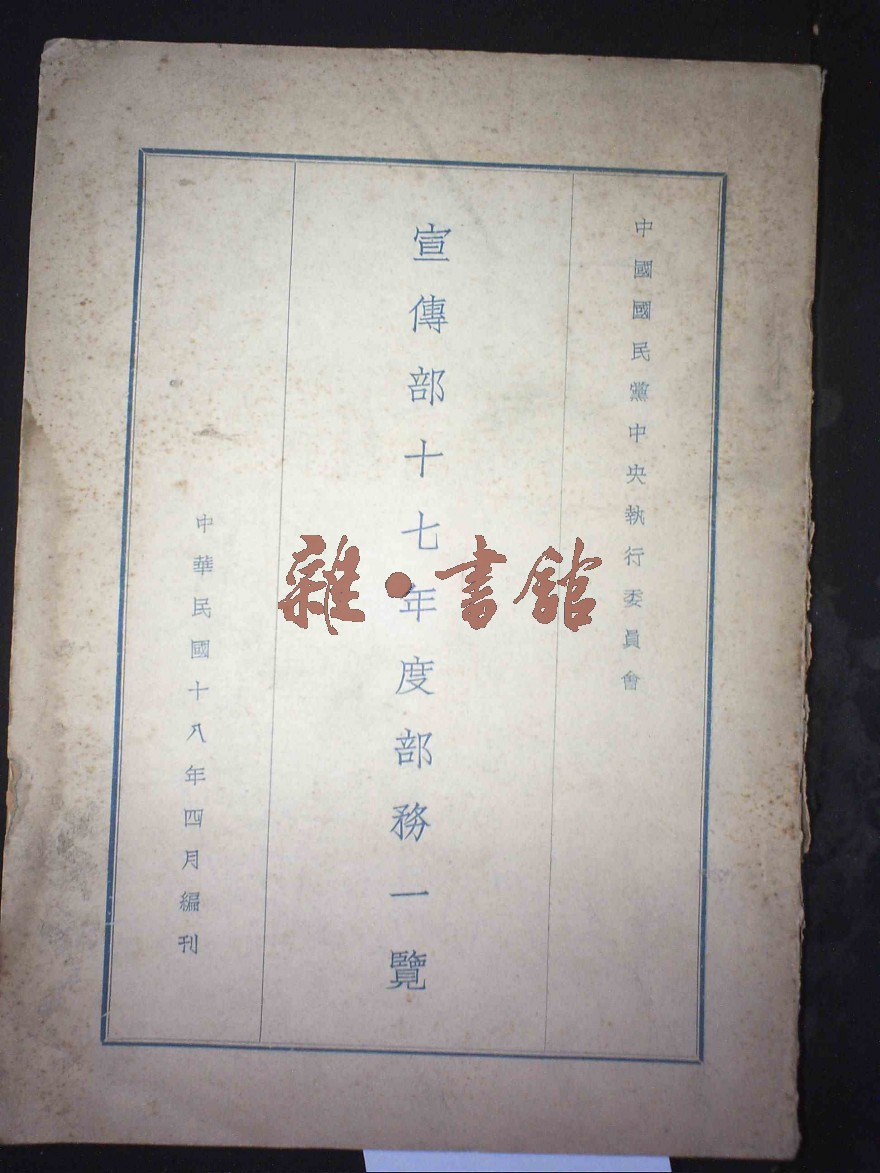 中國國民黨中央執行委員會
宣傳部十七年度部務一覽
中華民國十八年四月編刊
雜·書館